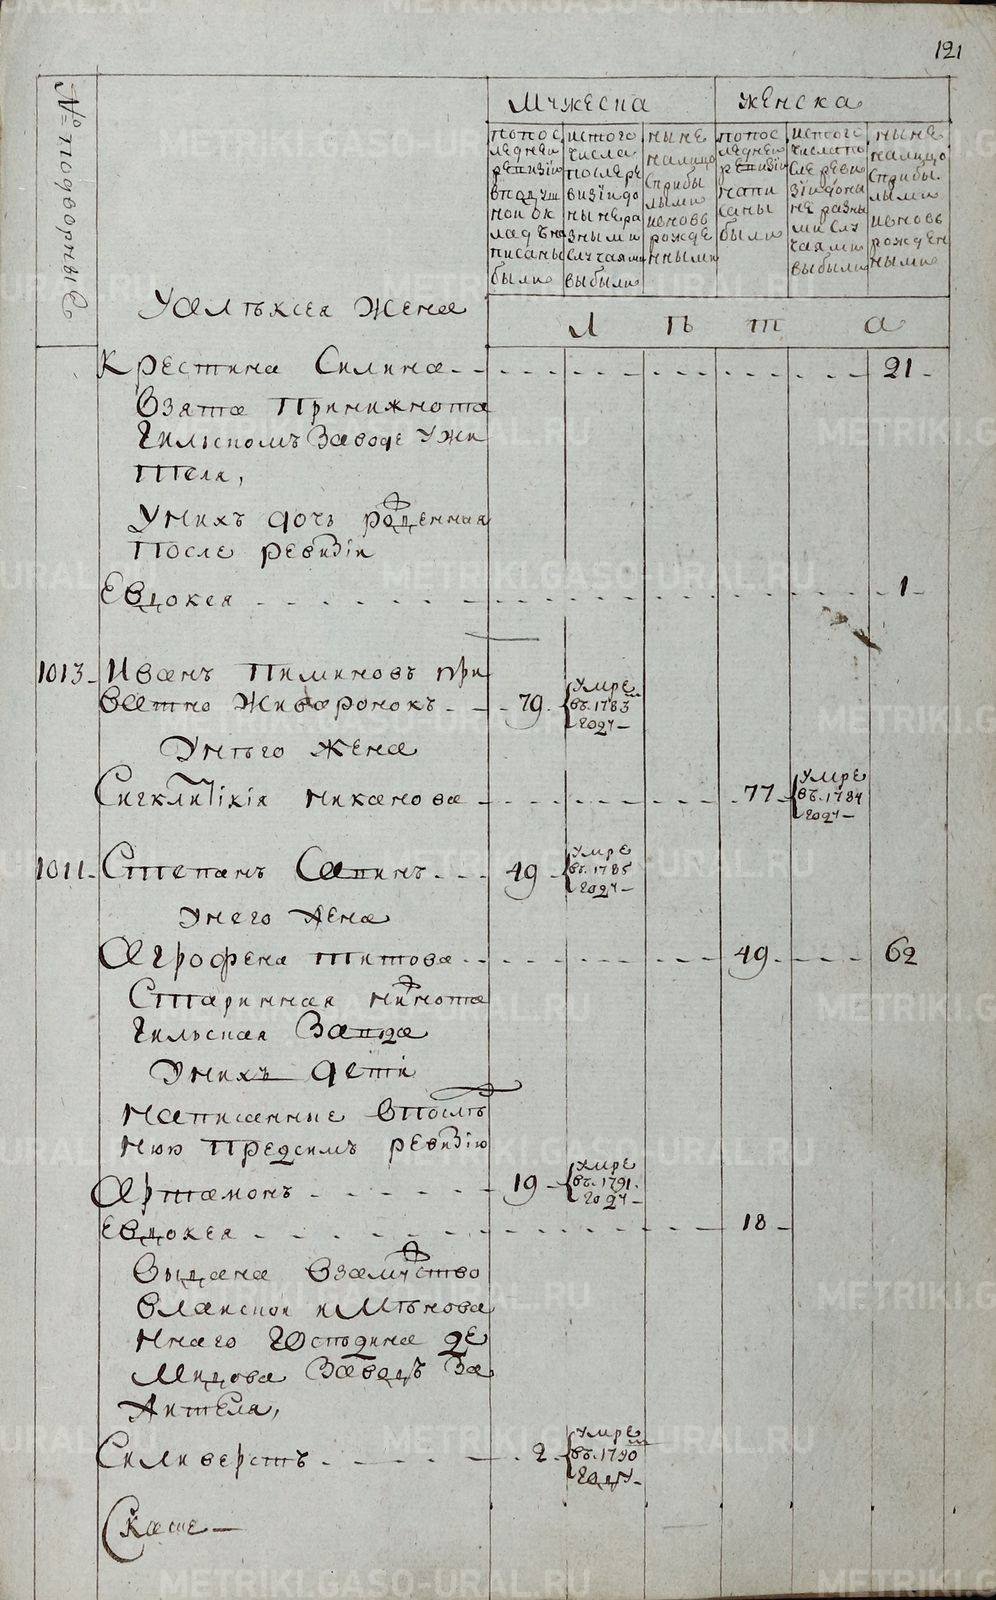 121
№ подворныя
Мужеска
Женска
попос
леднеи
ревизіи
вподуш
нои ок
ладъ на
писаны
были
истого
числа
послере
визіи до
ныне ра
зными
случаями
выбыли
ныне
налицо
сприбы
лыми
исновь
рожде
нными
попос
леднеи
ревизіи
напи
саны
были
истого
числа по
сле реви
зіи доны
не разны
ми слу
чаями
выбыли
ныне
налицо
сприбы
лыми
исновь
рожден
ными
Л ѣ т а
У Алѣксея Жена
Крестина Силина 21
Взята Принижнота
гильскомъ Заводе У жи
теля,
Унихъ дочь рожденная
После ревизіи
Евдокея 1
1013 Иванъ Пиминовъ при
ватно Живоронокъ 79 {Умре
въ 1783
году
Унѣго жена
Сигклитікія Никанова 77 {Умре
въ 1784
году
1011 Степанъ Сапинъ 49 {Умре
въ 1785
году
Унего Жена
Агрофена Титова 49 62
Старинная нижнота
гильскаго Завода
Унихъ дети
Написанные впослѣ
нюю Предсимъ ревизію
Артамонъ 19 {Умре
въ 1791
году
Евдокея 18
Выдана Взамуство
Влаиской и Мѣнова
ннаго Господина де
Мидова Заводъ За
Жителя,
Силиверстъ 2 {Умре
въ 1790
году
Скаше
METRIKI.GASO-URAL.RU